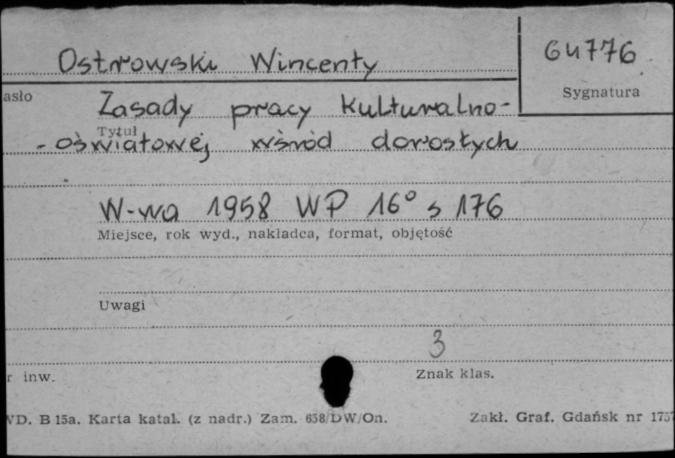 Ostrowski Wincenty
64776
asło
Sygnatura
Zasady pracy kulturalno-
Tytuł
-oświatowej wśród dorosłych
W-wa 1958 WP 16° s 176
Miejsce, rok wyd., nakładca, format, objętość
Uwagi
3
r inw.
Znak klas.
WD. B 15a. Karta katal. (z nadr.) Zam. 658/DW/On.
Zakł. Graf. Gdańsk nr 1757